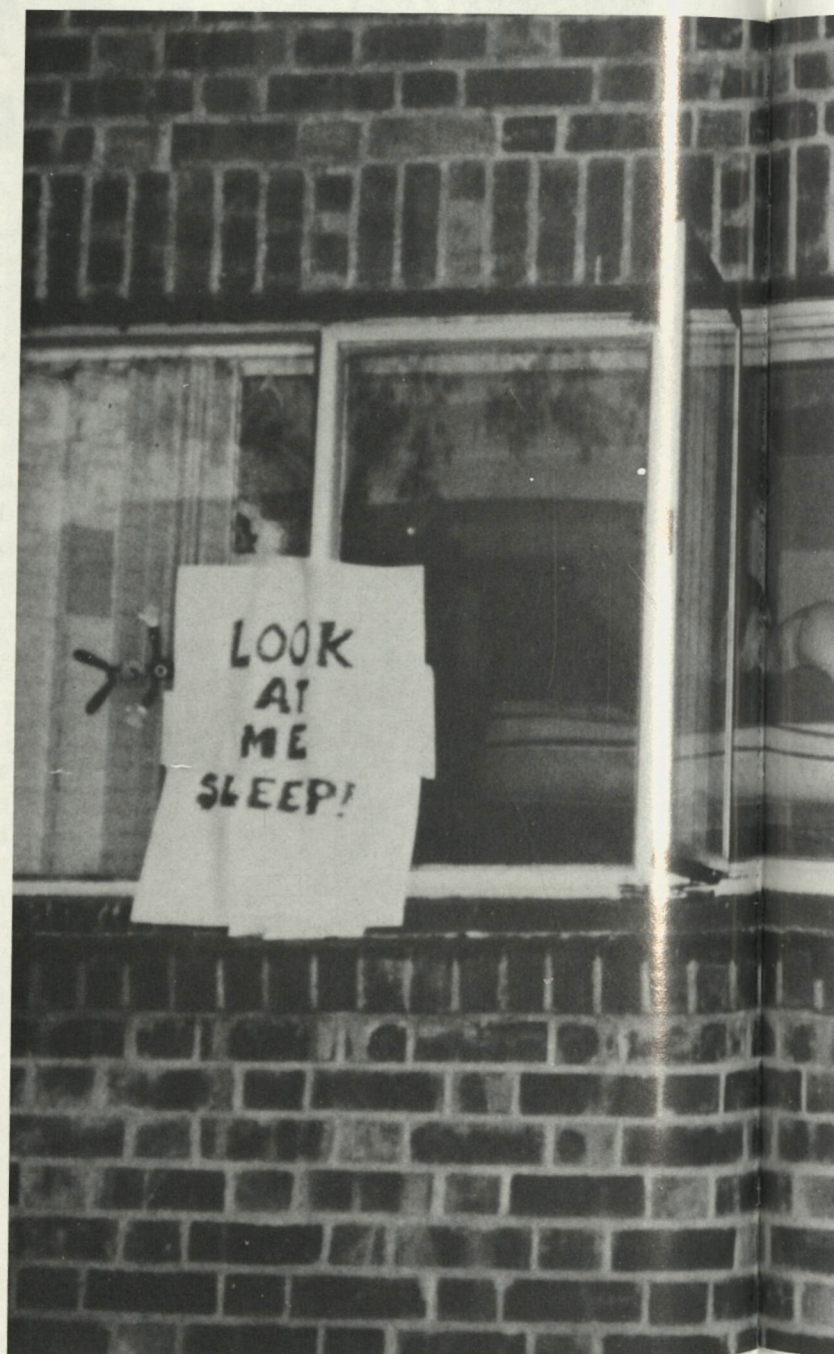 LOOK
AT
ME
SLEEP!